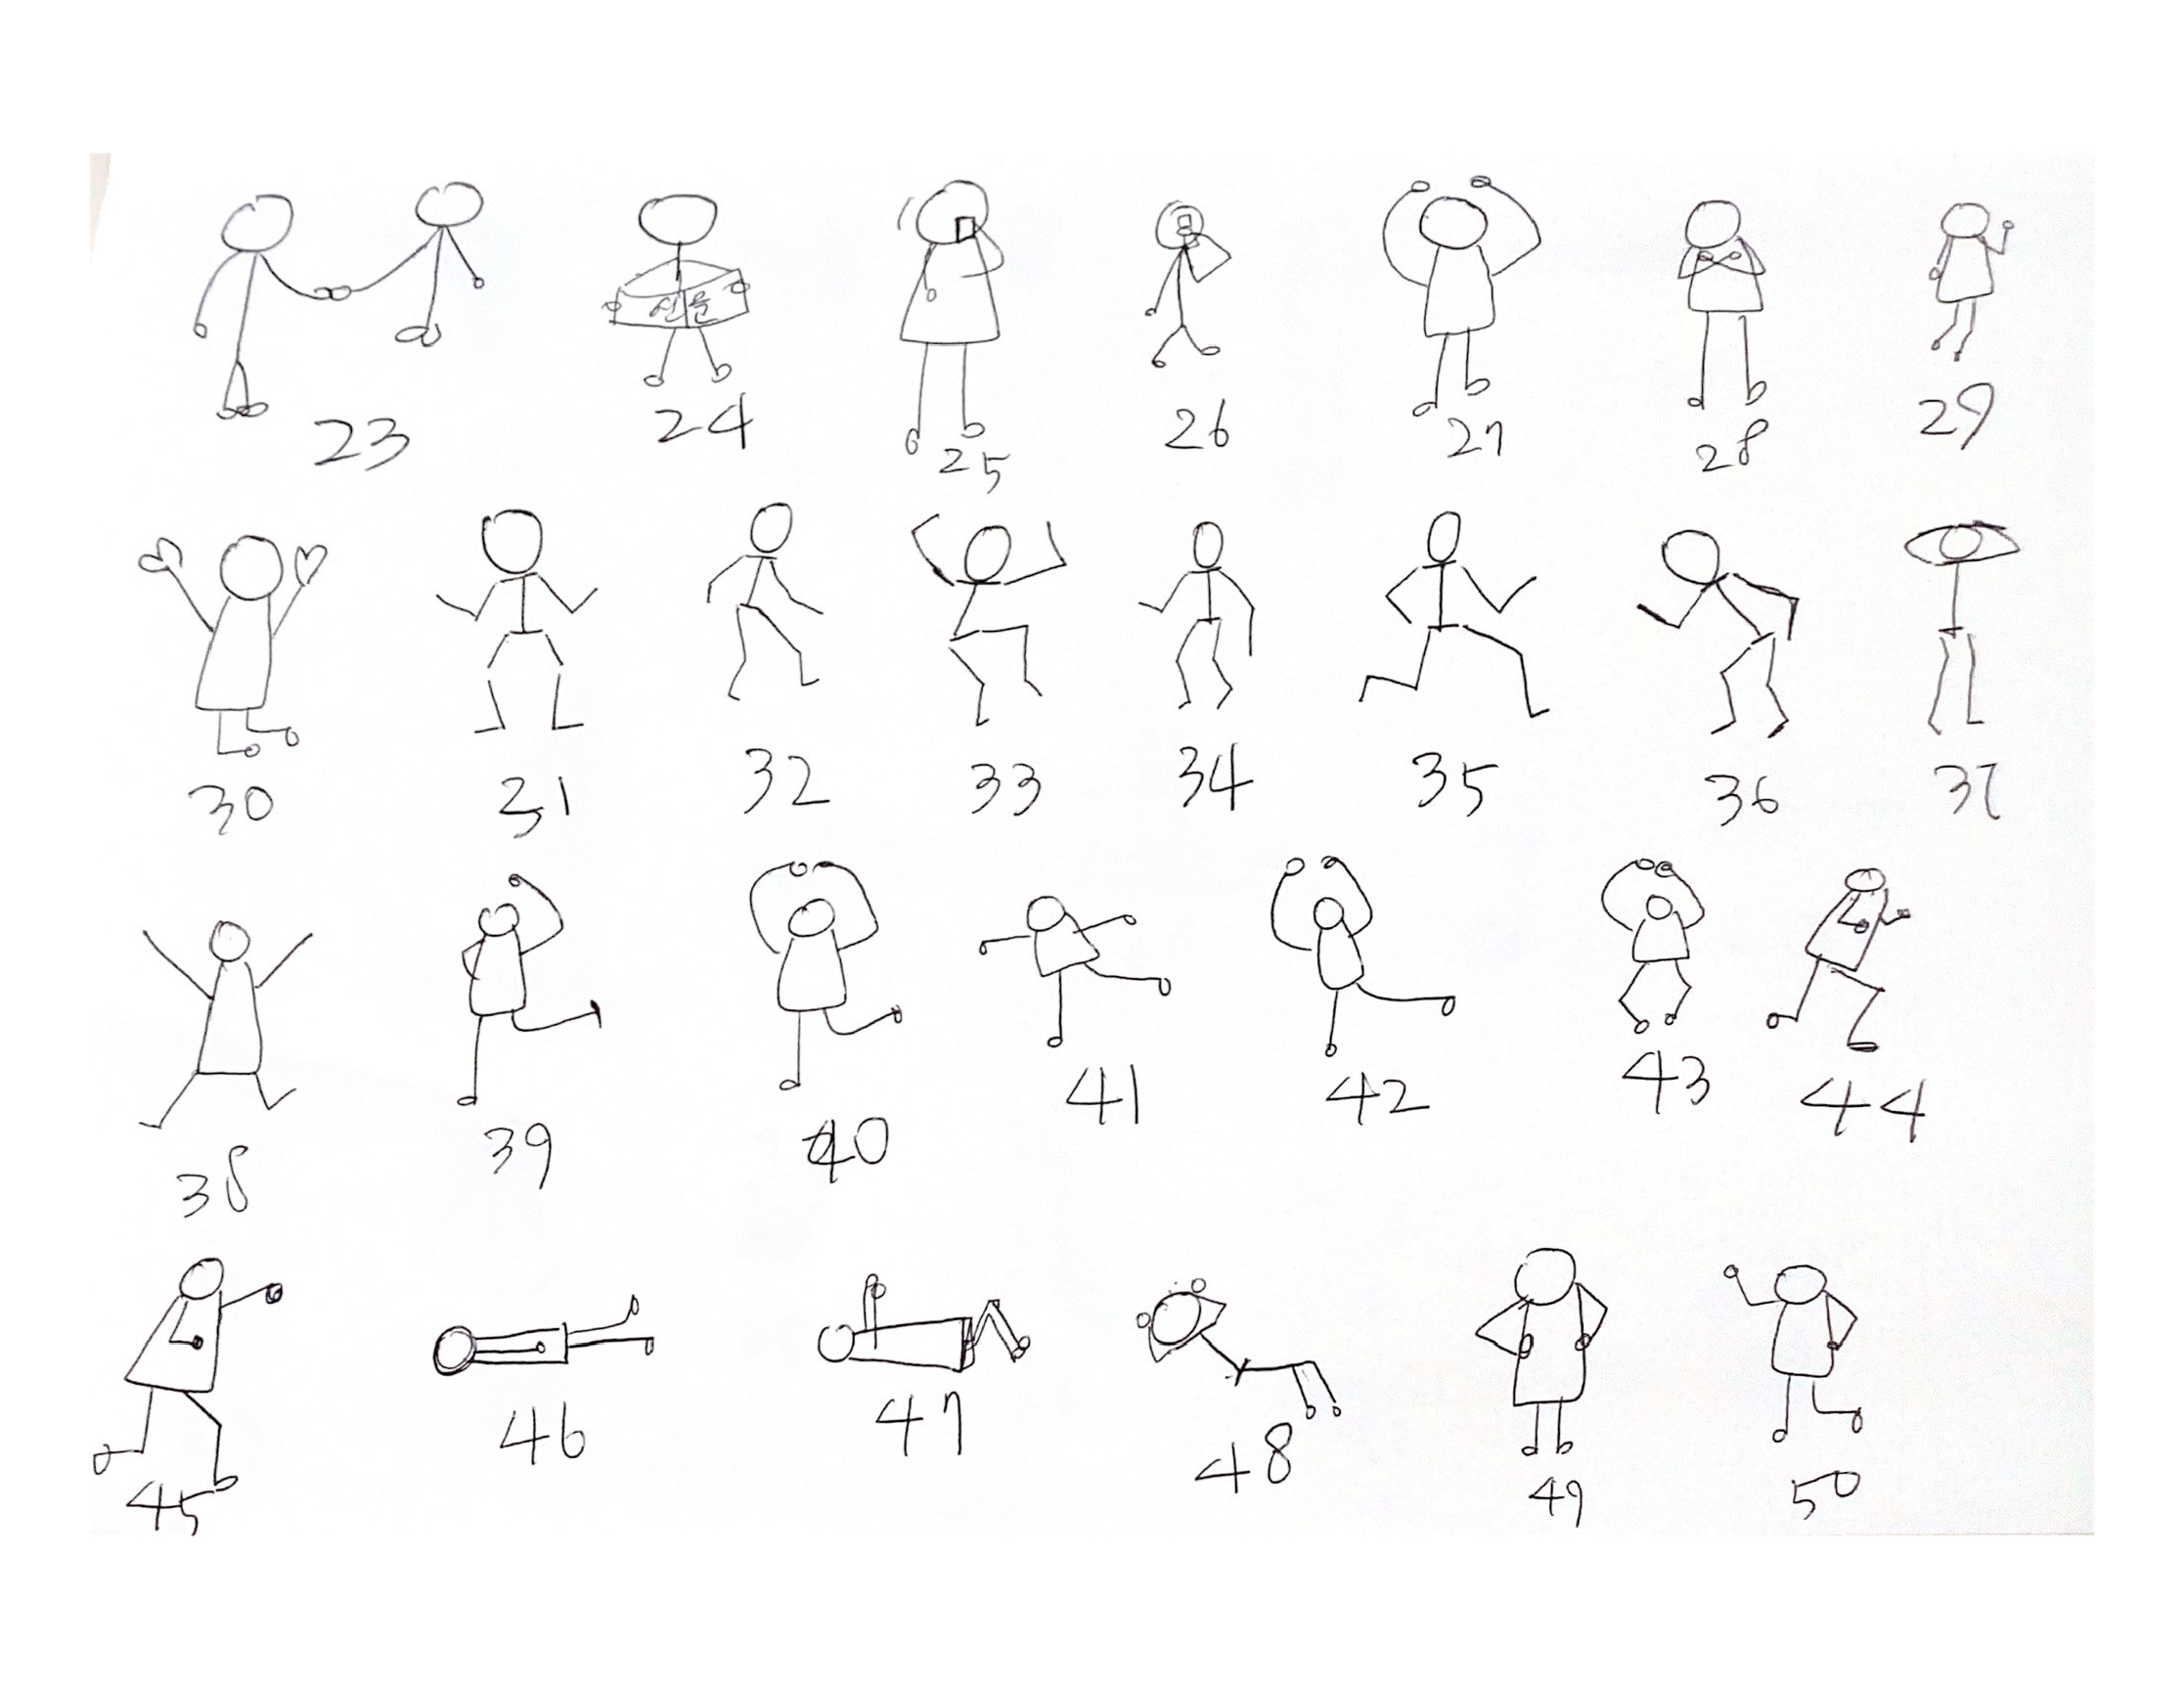 신문
23 24 25 26 27 28 29
30 31 32 33 34 35 36 37
38 39 40 41 42 43 44
45 46 47 48 49 50